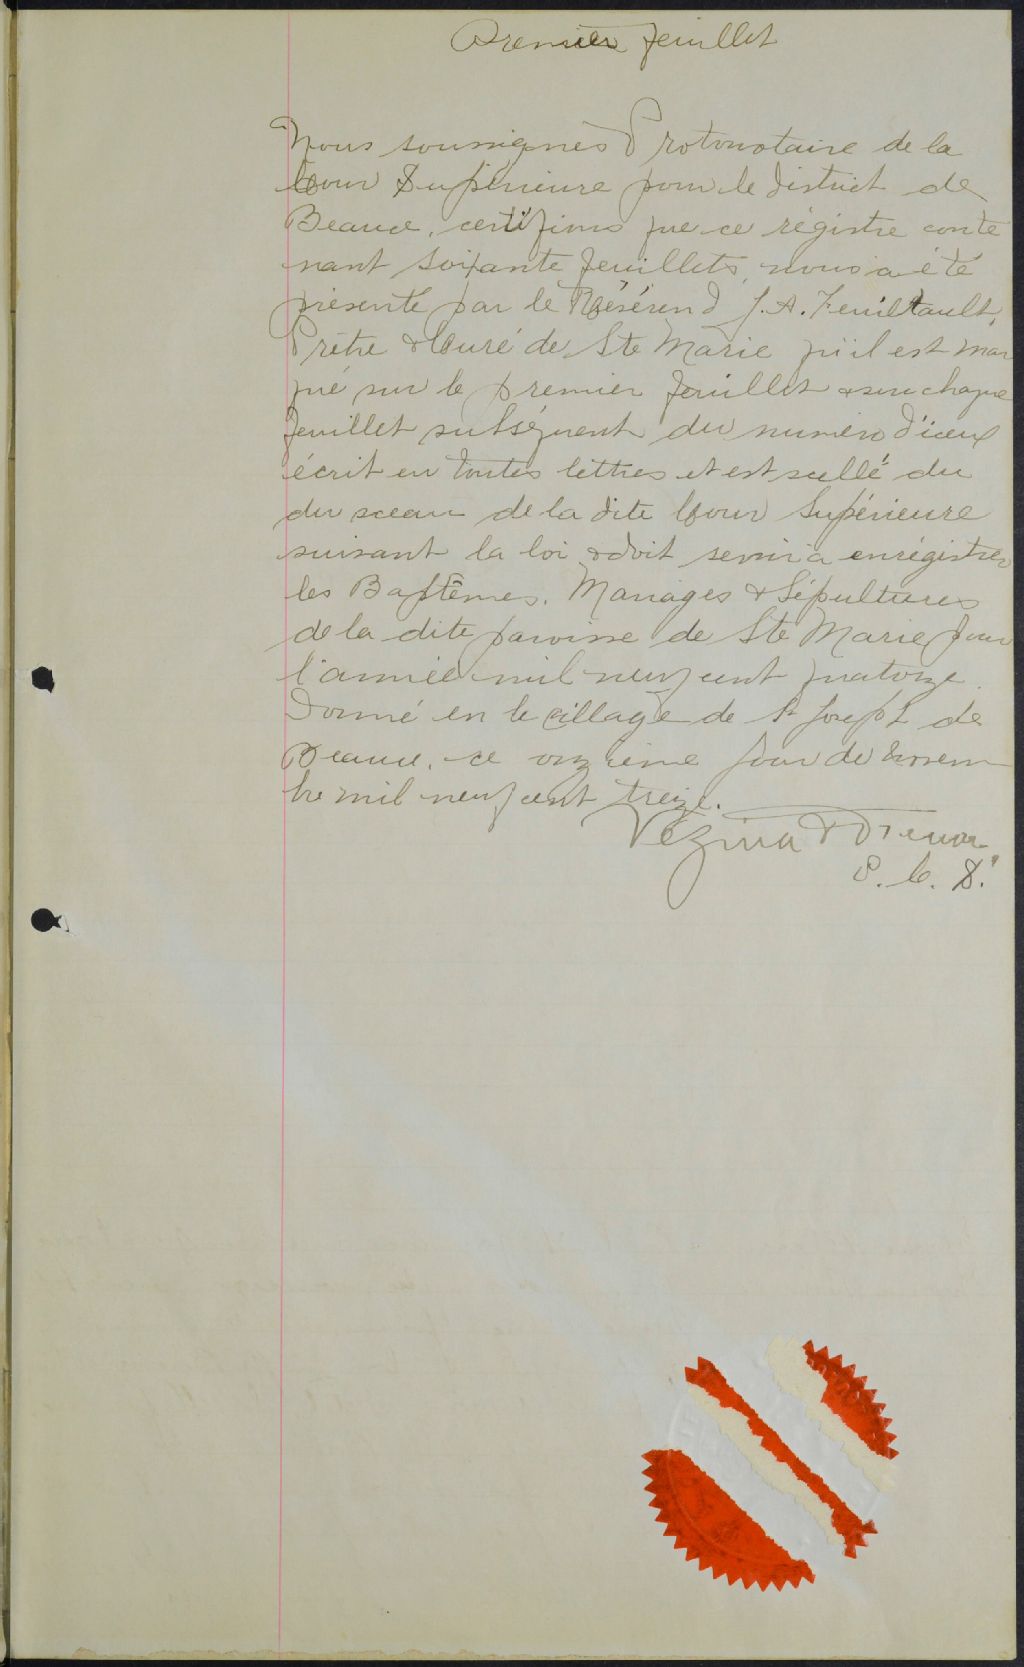 Premier feuillet
Nous soussignés Protonotaire de la
Cour Supérieure pour le District de
Beauce, certifions que ce régistre conte
nant soixante feuillets, nous a été
présenté par le Révérend J. A. Feuiltault,
Prêtre & Curé de Ste Marie qu'il est mar
qué sur le premier feuillet & sur chaque
feuillet subséquent du numéro d'iceux
écrit en toutes lettres et est scellé du
du sceau de la dite Cour Supérieure
suivant la loi & doit servir à enrégistrer
les Baptêmes, Mariages & Sépultures
de la dite paroisse de Ste Marie pour
l'année mil neuf cent quatorze.
Donné en le village de St Joseph de
Beauce, ce onzième jour de novem
bre mil neuf cent treize.
Vézina &
P. C. S.